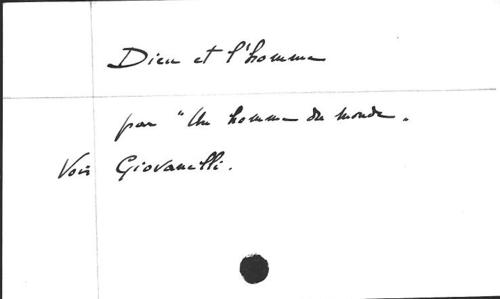 Dieu et l'homme
par "Un homme du monde".
Voir Giovanelli.